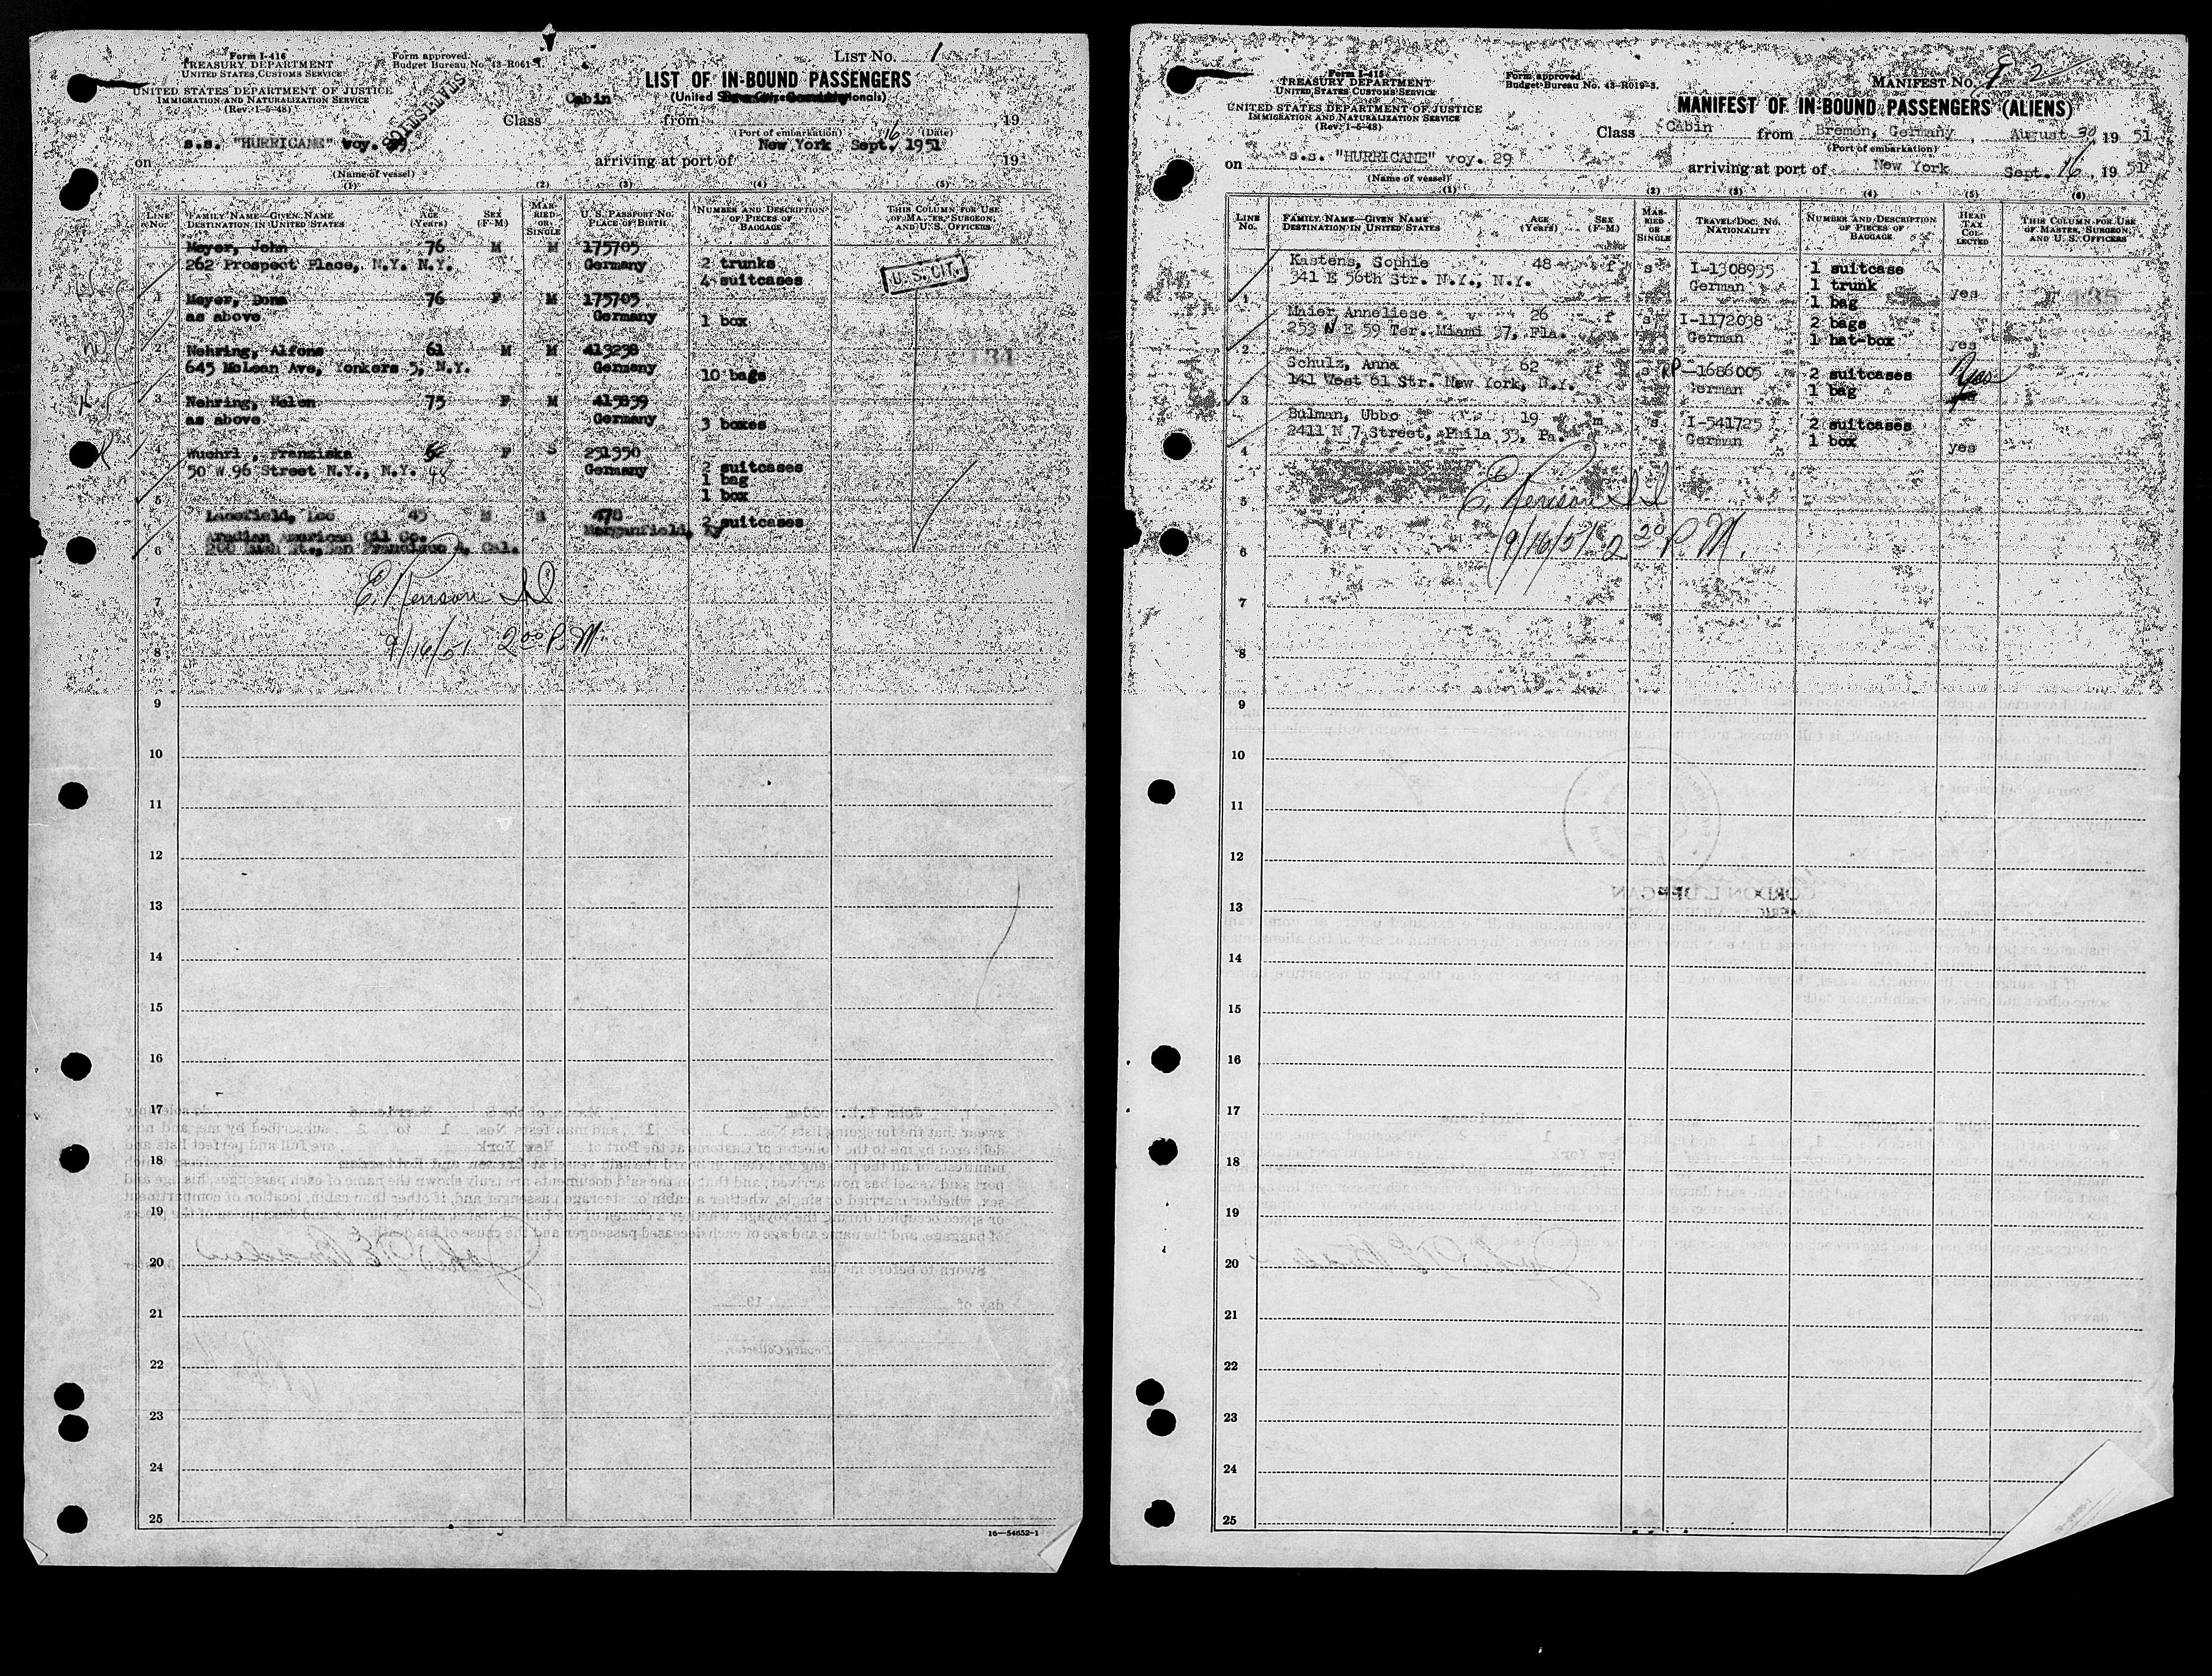 Form I-416
TREASURY DEPARTMENT
UNITED STATES CUSTOMS SERVICE
UNITED STATES DEPARTMENT OF JUSTICE
IMMIGRATION AND NATURALIZATION SERVICE
(Rev. 1-5-48)
Form approved.
Budget Bureau No. 43-R061-1.
LIST No. 1
LIST OF IN-BOUND PASSENGERS
Class Cabin from
(Port of embarkation) (Date)
on s.s. "HURRICANE" voy. 29 arriving at port of New York Sept. 16 1951
(Name of vessel)
(1) (2) (3) (4) (5)
LINE No. FAMILY NAME—GIVEN NAME DESTINATION IN UNITED STATES AGE (Years) SEX (F-M) MARRIED OR SINGLE U. S. PASSPORT NO. PLACE OF BIRTH NUMBER AND DESCRIPTION OF PIECES OF BAGGAGE THIS COLUMN FOR USE OF MASTER, SURGEON, AND U. S. OFFICERS
Meyer, John 76 M M 175705
262 Prospect Place, N.Y. N.Y. Germany 2 trunks
4 suitcases
U. S. CIT.
1 Meyer, Dona 76 F M 175705
as above Germany 1 box
2 Nehring, Alfons 61 M M 413238
134
645 McLean Ave, Yonkers 5, N.Y. Germany 10 bags
3 Nehring, Helen 75 F M 415839
as above Germany 3 boxes
4 Wuehrl, Franziska 48 F S 251550
50 W 96 Street N.Y., N.Y. Germany 2 suitcases
1 bag
5 1 box
Lacefield, Lee 45 M 478 2 suitcases
Arabian American Oil Co. Morganfield, Ky
6 200 Bush St., San Francisco 4, Cal.
E. Renison
7
9/16/51 2 00 P.M.
8
9
10
11
12
13
14
15
16
17
18
19
20
21
22
23
24
25
16—54652-1
Form I-415
TREASURY DEPARTMENT
UNITED STATES CUSTOMS SERVICE
UNITED STATES DEPARTMENT OF JUSTICE
IMMIGRATION AND NATURALIZATION SERVICE
(Rev. 1-5-48)
Form approved.
Budget Bureau No. 43-R019-3.
MANIFEST No. 2
MANIFEST OF IN-BOUND PASSENGERS (ALIENS)
Class Cabin from Bremen, Germany, August 30 1951
(Port of embarkation)
on s.s. "HURRICANE" voy. 29 arriving at port of New York Sept. 16, 1951
(Name of vessel)
(1) (2) (3) (4) (5) (6)
LINE No. FAMILY NAME—GIVEN NAME DESTINATION IN UNITED STATES AGE (Years) SEX (F-M) MARRIED OR SINGLE TRAVEL DOC. NO. NATIONALITY NUMBER AND DESCRIPTION OF PIECES OF BAGGAGE HEAD TAX COLLECTED THIS COLUMN FOR USE OF MASTER, SURGEON, AND U. S. OFFICERS
Kastens, Sophie 48 f s I-1308935 1 suitcase
341 E 56th Str. N.Y., N.Y. German 1 trunk
1 1 bag yes 135
Maier Anneliese 26 f s I-1172038 2 bags
253 N E 59 Ter. Miami 37, Fla. German 1 hat-box yes
2
Schulz, Anna 62 f s RP-1686005 2 suitcases yes
141 West 61 Str. New York, N.Y. German 1 bag
3
Bulman, Ubbo 19 m s I-541725 2 suitcases
2411 N 7 Street, Phila 33, Pa. German 1 box yes
4
E. Renison
5
9/16/51 2 20 P.M.
6
7
8
9
10
11
12
13
14
15
16
17
18
19
20
21
22
23
24
25